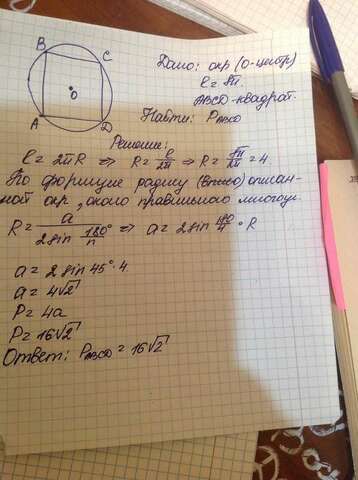 B
C
O
A
D
Дано: окр (O-центр)
ℓ = 8π
ABCD-квадрат.
Найти: P_ABCD
Решение:
ℓ = 2πR ⇒ R = ℓ/2π ⇒ R = 8π/2π = 4.
По формуле радиу описан-
ной окр, около правильного многоуг.
R = a/(2 sin 180°/n) ⇒ a = 2 sin 180/4 · R
a = 2 sin 45° · 4
a = 4√2
P = 4a
P = 16√2
Ответ: P_ABCD = 16√2